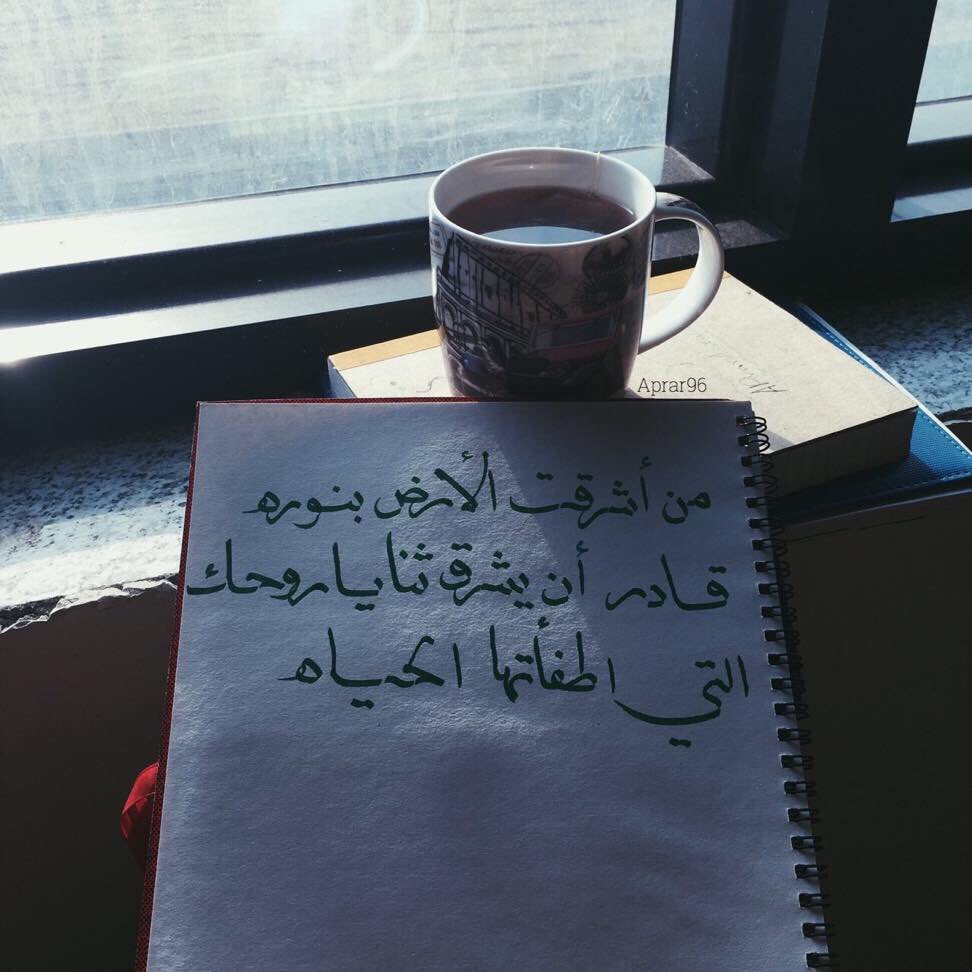 Aprar96
من أشرقت الأرض بنوره
قادر أن يشرق ثنايا روحك
التي اطفأتها الحياه